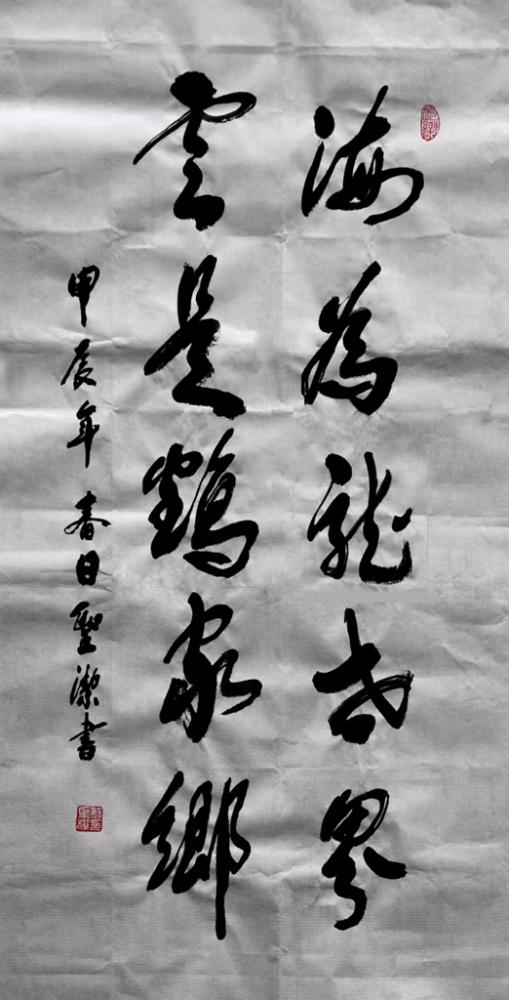 海為龍世界
雲是鶴家鄉
甲辰年春日聖潔書